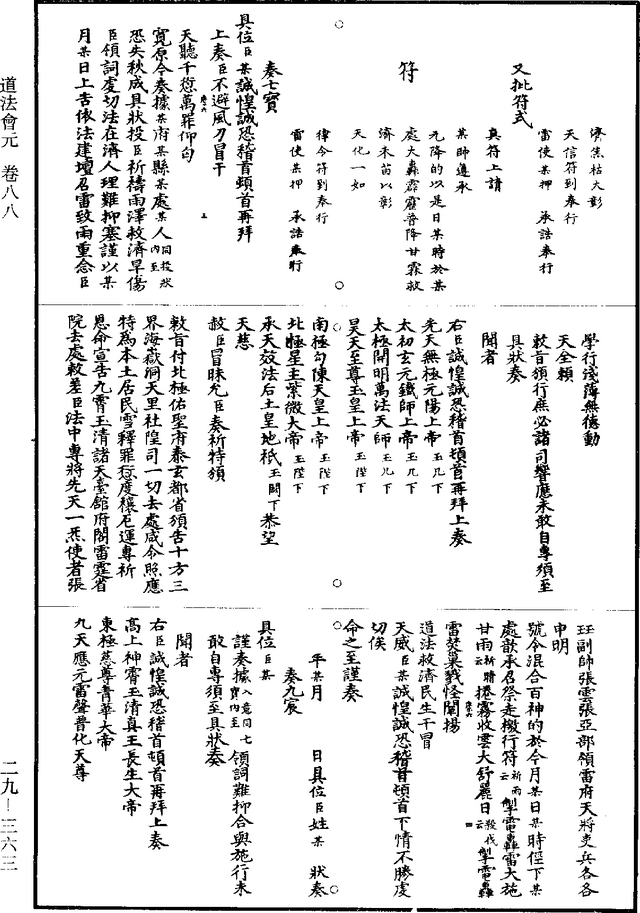 道法會元　卷八八
二九－三六三
濟焦枯大彰
天信符到奉行
雷使某押　承誥奉行
又批符式
眞符上請
某師邊承
元降的以是日某時於某
處大轟霹靂普降甘霖救
濟禾苗以彰
天化一如
符
律令符到奉行
雷使某押　承誥奉行
奏七寶
具位臣某誠惶誠恐稽首頓首再拜
上奏臣不避風刀冒干
天聽千愆萬罪仰匄
寬原今奏據某府某縣某處某人同投狀内至
恐失秋成具狀投臣祈禱雨澤救濟旱傷
臣領詞虔切法在濟人理難抑塞謹以某
月某日上吉依法建壇召雷致雨重念臣
學行淺薄無德動
天全賴
敕旨頒行庶必諸司響應未敢自專須至
具狀奏
聞者
右臣誠惶誠恐稽首頓首再拜上奏
先天無極元陽上帝玉几下
太初玄元鐵師上帝玉几下
太極開明萬法天師玉几下
昊天至尊玉皇上帝玉陛下
南極勾陳天皇上帝玉陛下
北極星主紫微大帝玉陛下
承天效法后土皇地祇玉闕下恭望
天慈
赦臣冒昧允臣奏祈特頒
敕旨付北極佑聖府泰玄都省須告十方三
界海嶽洞天里社隍司一切去處咸令照應
特爲本土居民雪釋罪愆度禳厄運專祈
恩命宣告九霄玉清諸天臺館府閣雷霆省
院去處敕差臣法中專將先天一炁使者張
珏副師張雲張亞部領雷府天將吏兵各各
申明
號令混合百神的於今月某日某時徑下某
處歆承召祭走檄行符祈雨云掣電轟雷大施
甘雨祈晴云捲霧收雲大舒麗日殺伐云掣電轟
雷焚巢戮怪闡揚
道法救濟民生干冒
天威臣某誠惶誠恐稽首頓首下情不勝虔
切俟
命之至謹奏
年某月　日具位臣姓某　狀奏
奏九宸
具位臣某
謹奏據入意同七寶内至領詞難抑合與施行未
敢自專須至具狀奏
聞者
右臣誠惶誠恐稽首頓首再拜上奏
高上神霄玉清眞王長生大帝
東極慈尊青華大帝
九天應元雷聲普化天尊